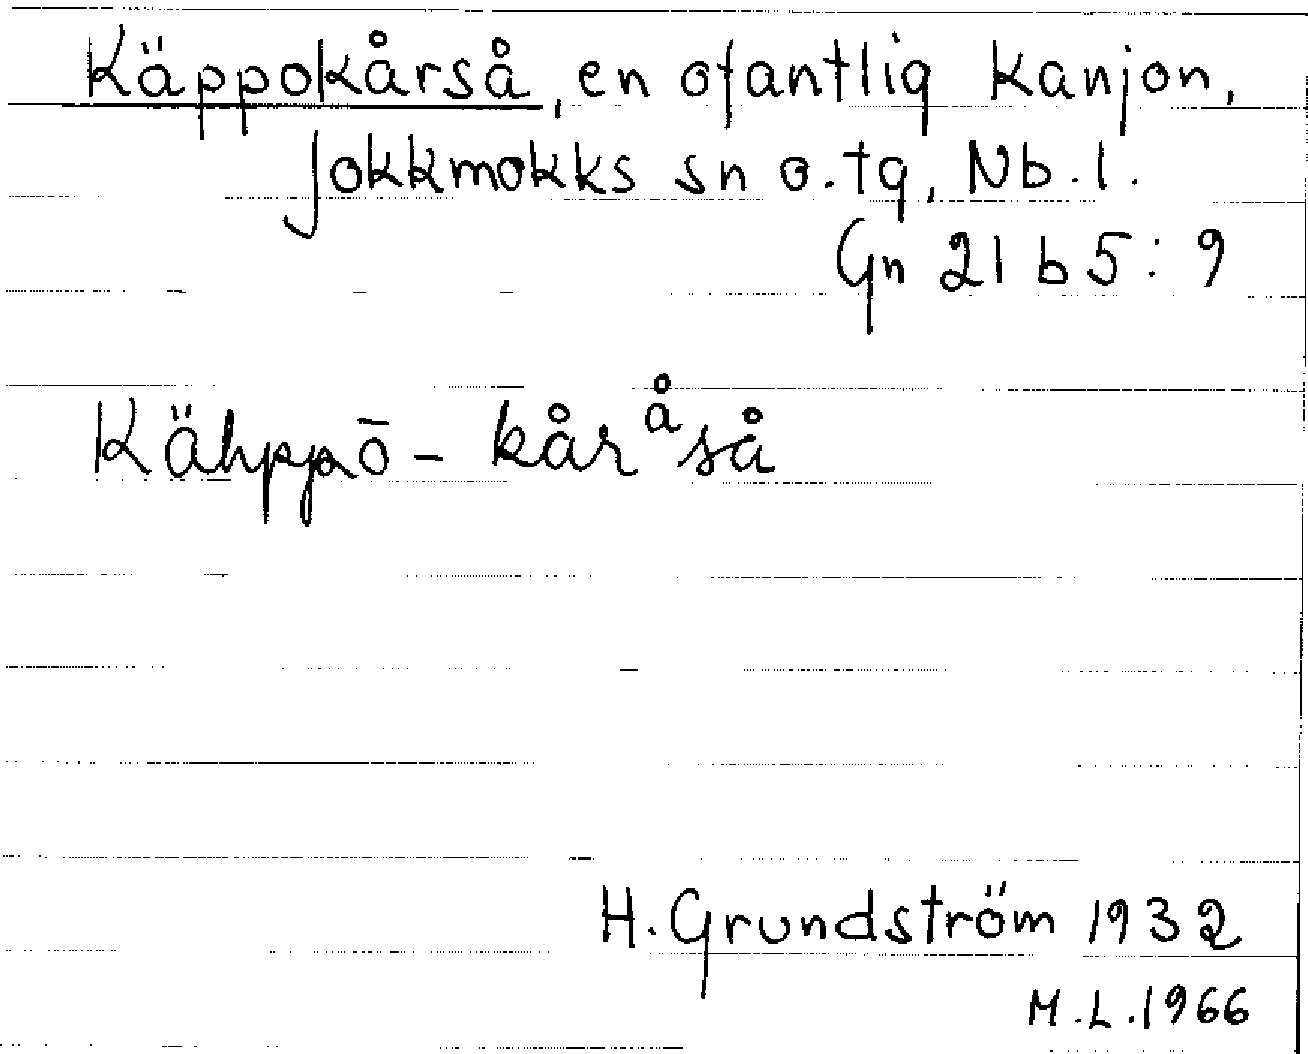 Käppokårså, en ofantlig kanjon,
Jokkmokks sn o. tg, Nb. l.
Gn 21 b 5 : 9
Kähppō - kåråså
H. Grundström 1932
M. L. 1966